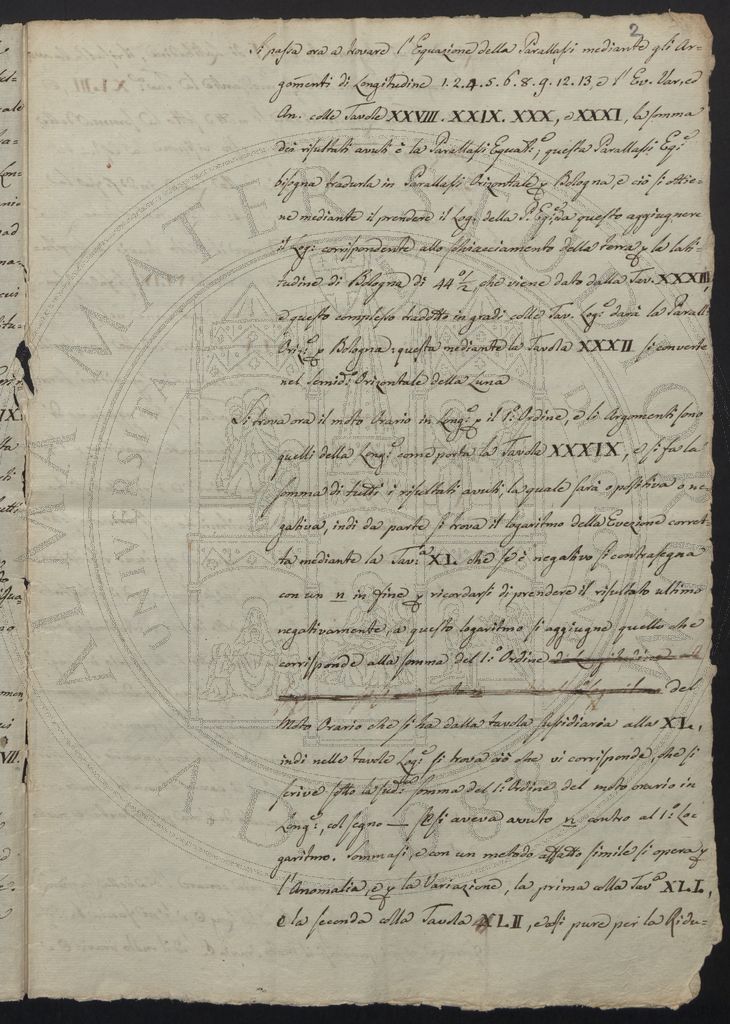 2
Si passa ora a trovare l'Equazione della Parallassi mediante gli Ar=
gomenti di Longitudine 1. 2. 4. 5. 6. 8. 9. 12. 13, e l'Ev. Var, ed
An. colle Tavole XXVIII. XXIX. XXX, e XXXI, la somma
dei risultati avuti è la Parallassi Equat:ᵉ; questa Parallassi Eq:ᵉ
bisogna tradurla in Parallassi Orizontale p Bologna, e ciò si ottie=
ne mediante il prendere il Log: della P. Eq: da questo aggiugnere
il Log: corrispondente allo schiacciamento della terra p la lati=
tudine di Bologna di 44°½ che viene dato dalla Tav. XXXIII,
e questo complesso tradotto in gradi colle Tav. Log:ᵉ darà la Parall:
Oriz:ᵉ p Bologna: questa mediante la Tavola XXXII si converte
nel semid:º Orizontale della Luna
Si trova ora il moto Orario in Long:ᵉ p il 1º Ordine, e li Argomenti sono
quelli della Long:ᵉ come porta la Tavola XXXIX, e si fa la
somma di tutti i risultati avuti, la quale sarà o positiva o ne=
gativa, indi da parte si trova il logaritmo della Evezione corret=
ta mediante la Tav:ᵃ XL che se è negativo si contrasegna
con un n in fine p ricordarsi di prendere il risultato ultimo
negativamente, a questo logaritmo si aggiugne quello che
corrisponde alla somma del 1º Ordine del
Moto Orario che si ha dalla tavola sussidiaria alla XL,
indi nelle tavole Log:ᵉ si trova ciò che vi corrisponde, che si
scrive sotto la sud:ᵗᵃ somma del 1º Ordine del moto orario in
Long:ᵉ, col segno — se si aveva avuto n contro al 1º Lo=
garitmo. Sommasi, e con un metodo affatto simile si opera p
l'Anomalia, e p la Variazione, la prima colla Tavᵃ XLI,
e la seconda colla Tavola XLII, e così pure per la Ridu=
ALMA MATER STUDIORUM
UNIVERSITA
A.D. 1088